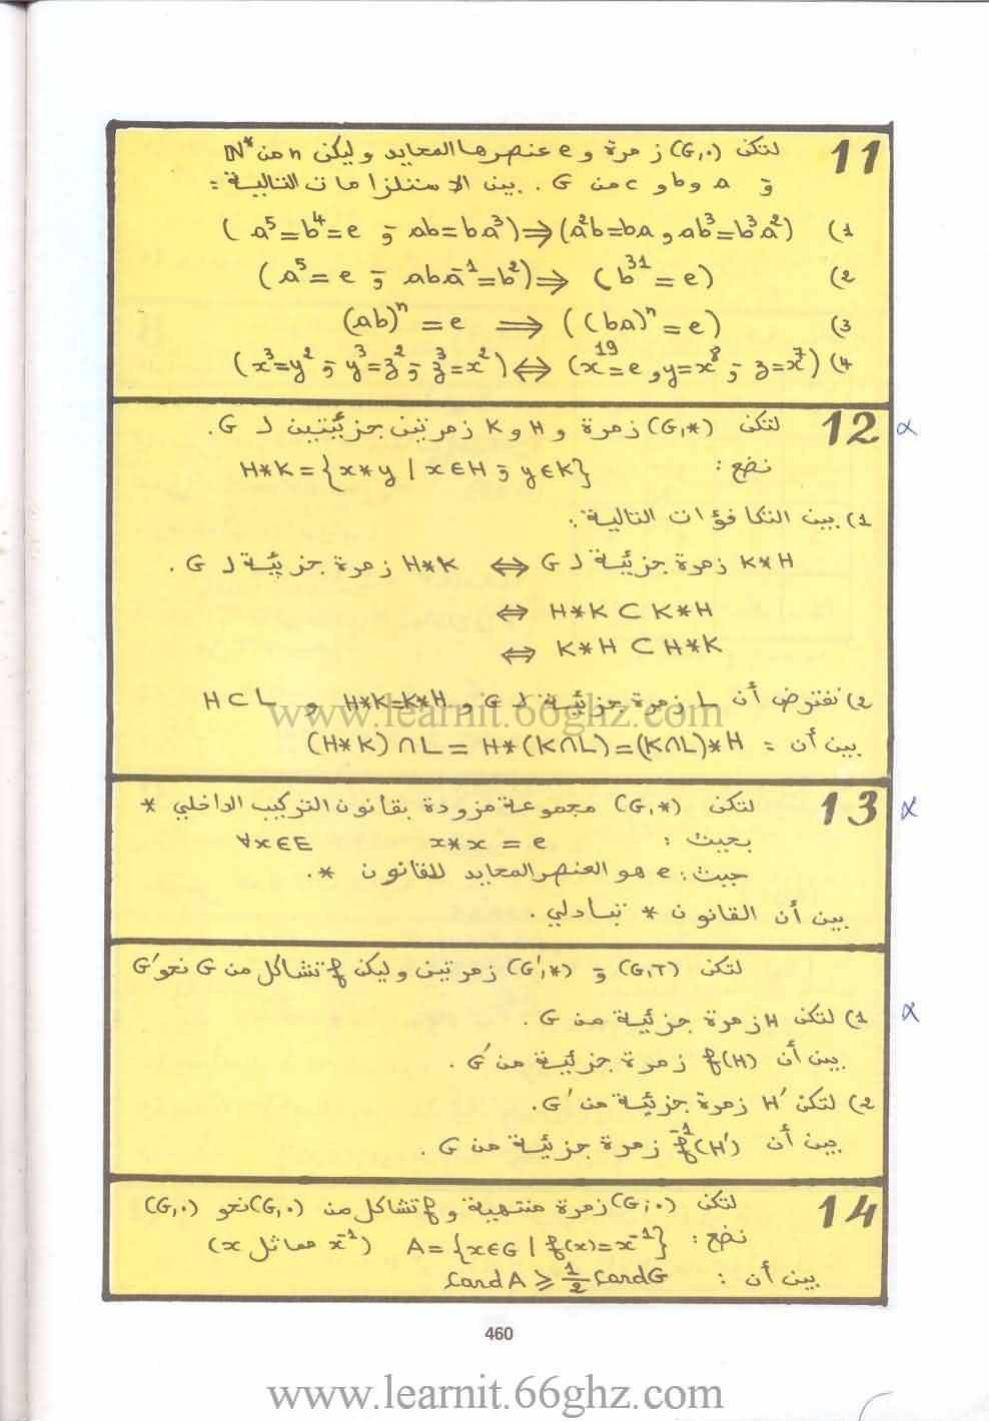 11 لتكن (G,.) زمرة و e عنصرها المحايد و ليكن n من N*
و a و b و c من G . بين الاستلزامات التالية :
1) (a⁵=b⁴=e و ab=ba³) ⇒ (a²b=ba و ab³=b³a²)
2) (a⁵=e و aba⁻¹=b²) ⇒ (b³¹=e)
3) (ab)ⁿ=e ⇒ ((ba)ⁿ=e)
4) (x³=y² و y³=z² و z³=x²) ⇔ (x¹⁹=e و y=x⁸ و z=x⁷)
12 لتكن (G,*) زمرة و H و K زمرتين جزئيتين لـ G. α
نضع : H*K={x*y | x∈H و y∈K}
1) بين التكافؤات التالية :
K*H زمرة جزئية لـ G ⇔ H*K زمرة جزئية لـ G .
⇔ H*K ⊂ K*H
⇔ K*H ⊂ H*K
2) نفترض أن L زمرة جزئية لـ G و H*K=K*H و H⊂L
بين أن : (H*K)∩L = H*(K∩L)=(K∩L)*H
13 لتكن (G,*) مجموعة مزودة بقانون التركيب الداخلي * α
بحيث : x*x = e ∀x∈E
حيث : e هو العنصر المحايد للقانون *.
بين أن القانون * تبادلي .
لتكن (G,T) و (G',*) زمرتين و ليكن f تشاكل من G نحو G'
1) لتكن H زمرة جزئية من G . α
بين أن f(H) زمرة جزئية من G' .
2) لتكن H' زمرة جزئية من G'.
بين أن f⁻¹(H') زمرة جزئية من G .
14 لتكن (G;.) زمرة منتهية و f تشاكل من (G,.) نحو (G,.)
نضع : A={x∈G | f(x)=x⁻¹} (x⁻¹ مماثل x)
بين أن : CardA ⩾ 1/2 CardG
460
www.learnit.66ghz.com
www.learnit.66ghz.com